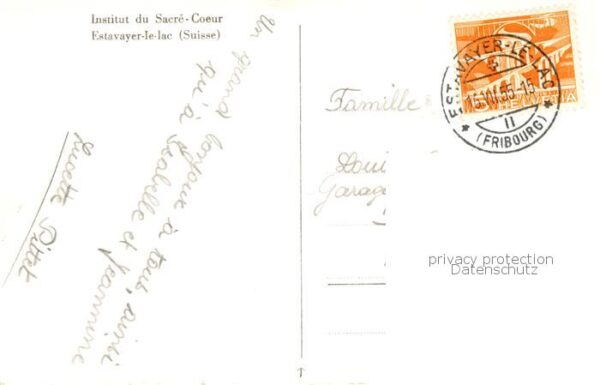 Institut du Sacré-Coeur
Estavayer-le-lac (Suisse)
Un grand bonjour à tous, ainsi
qu'à Isabelle et Jeannine
Lucette Pittet
ESTAVAYER-LE-LAC
15.VII.55-15
II
(FRIBOURG)
HELVETIA
Famille
Loui
Garage
privacy protection
Datenschutz